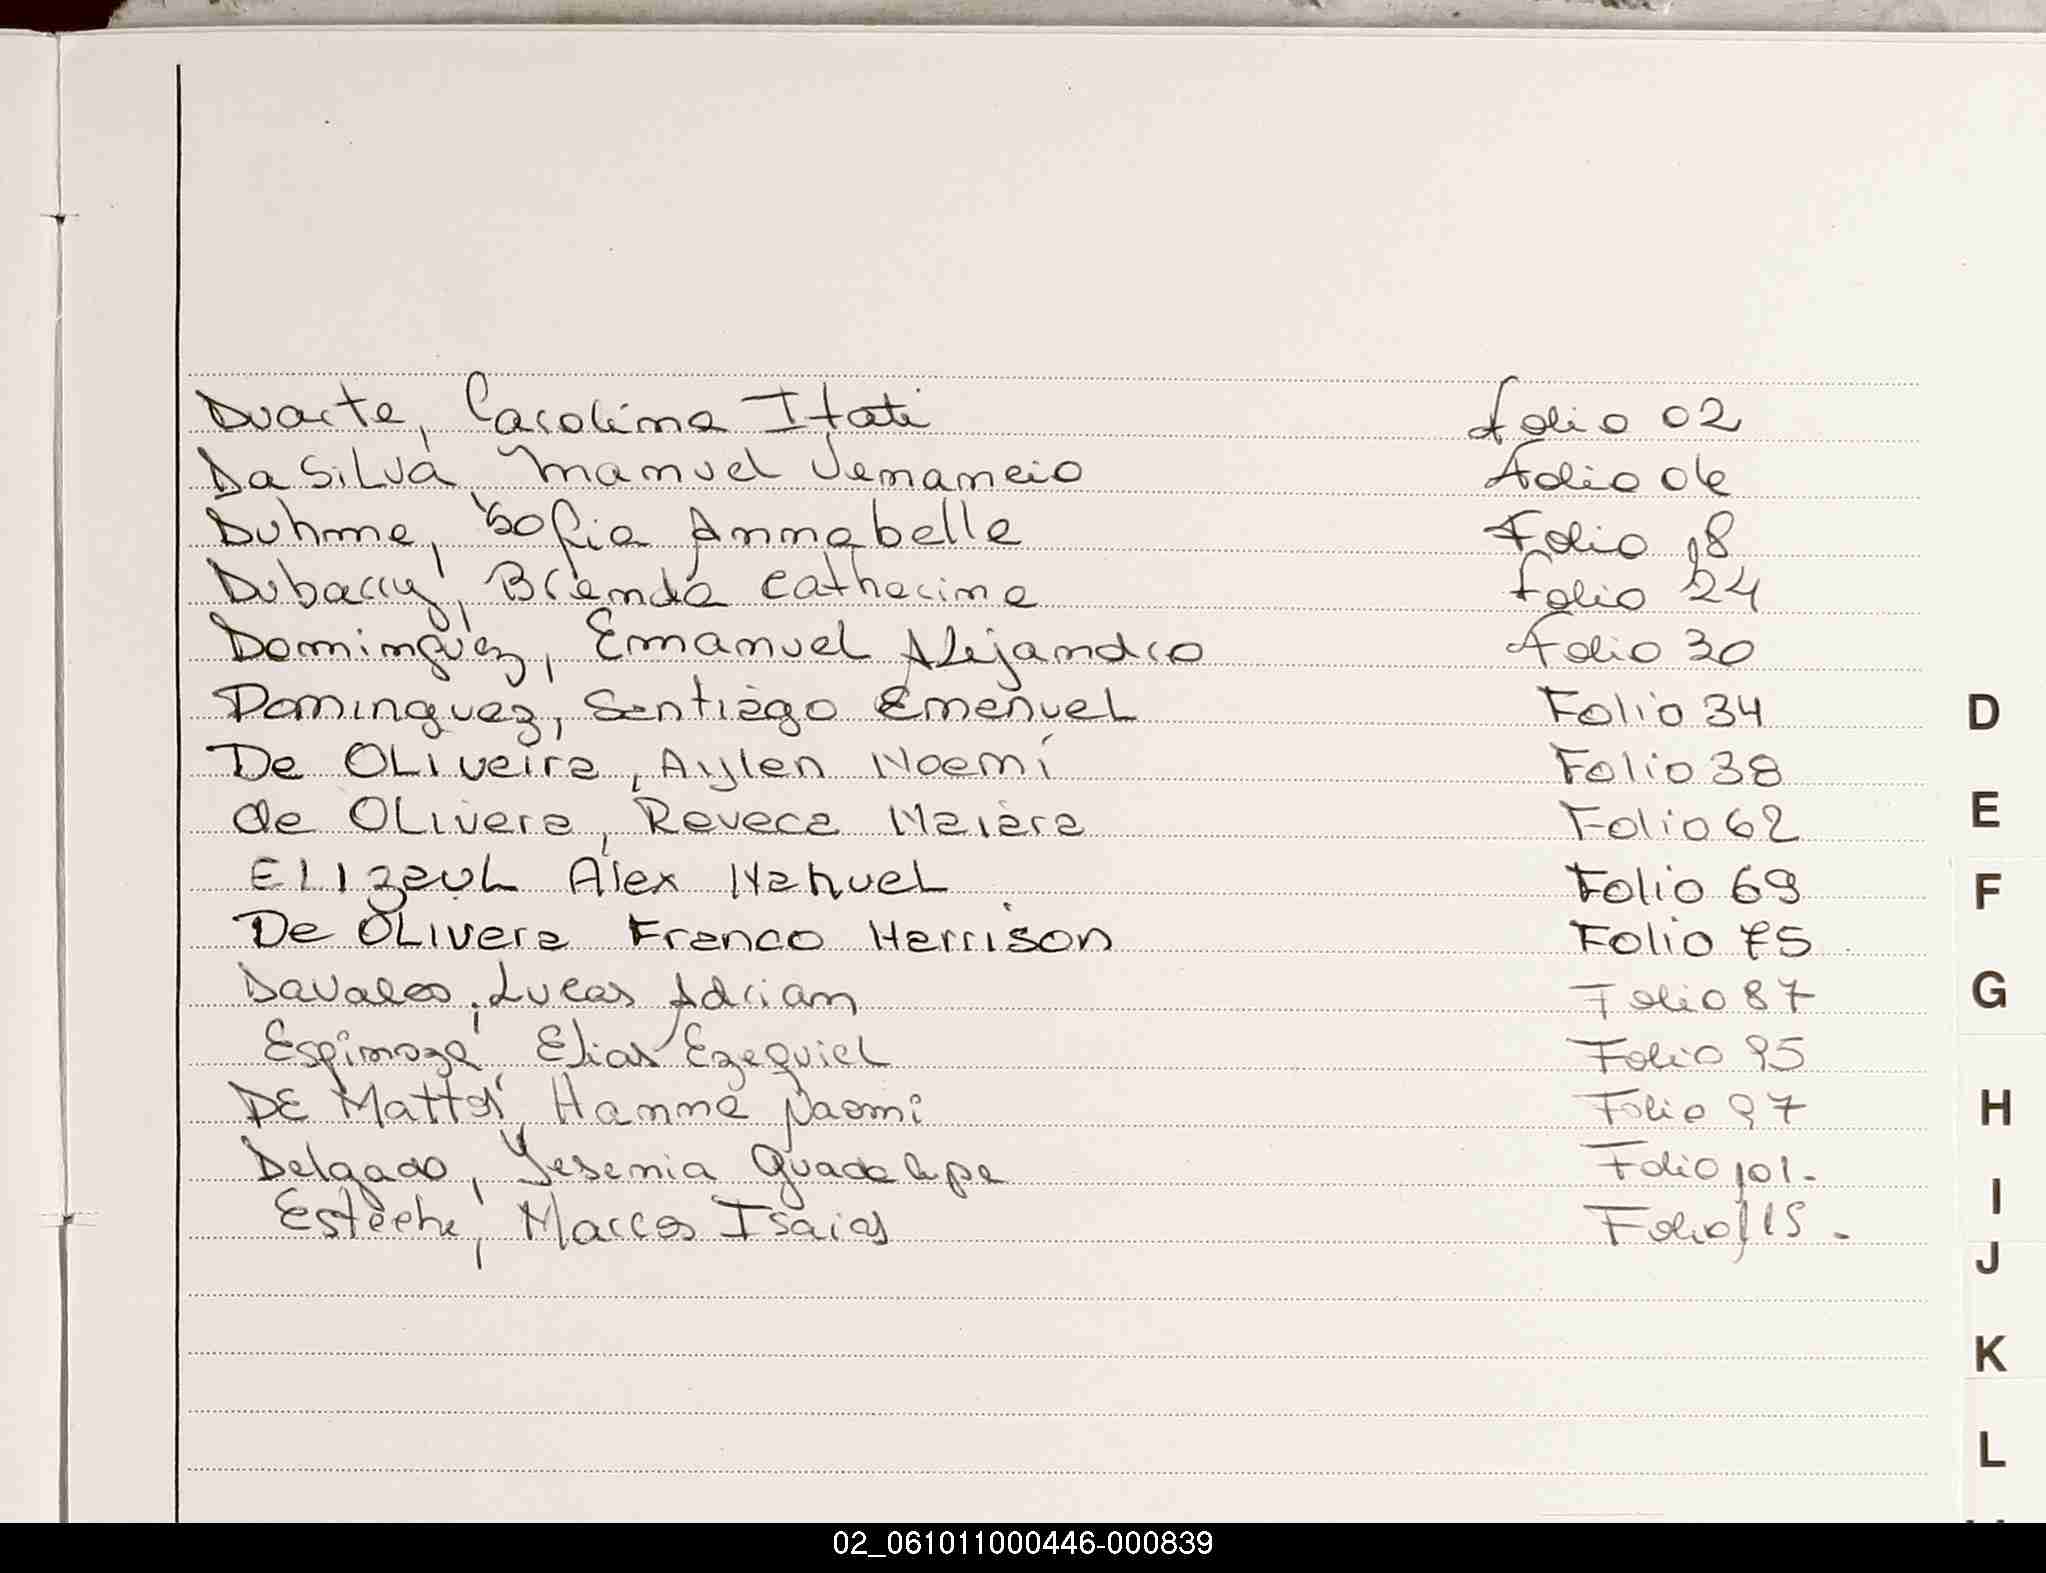 Duarte, Carolina Itati folio 02
Da Silva, Manuel Jenaneio folio 06
Duhme, Sofia Annabelle Folio 18
Dubarry, Brenda Catherine folio 24
Dominguez, Emanuel Alejandro folio 30
Dominguez, Santiago Emanuel Folio 34
De Oliveira, Aylen Noemí Folio 38
de Olivera, Reveca Maiara Folio 62
Elizaul Alex Nahuel Folio 69
De Olivera Franco Harrison Folio 75
Davalos, Lucas Adrian Folio 87
Espinoza, Elias Ezequiel Folio 95
DE Mattos, Hanna Naomi Folio 97
Delgado, Yesenia Guadalupe Folio 101.
Esteche, Marcos Isaias Folio 115.
D
E
F
G
H
I
J
K
L
02_061011000446-000839